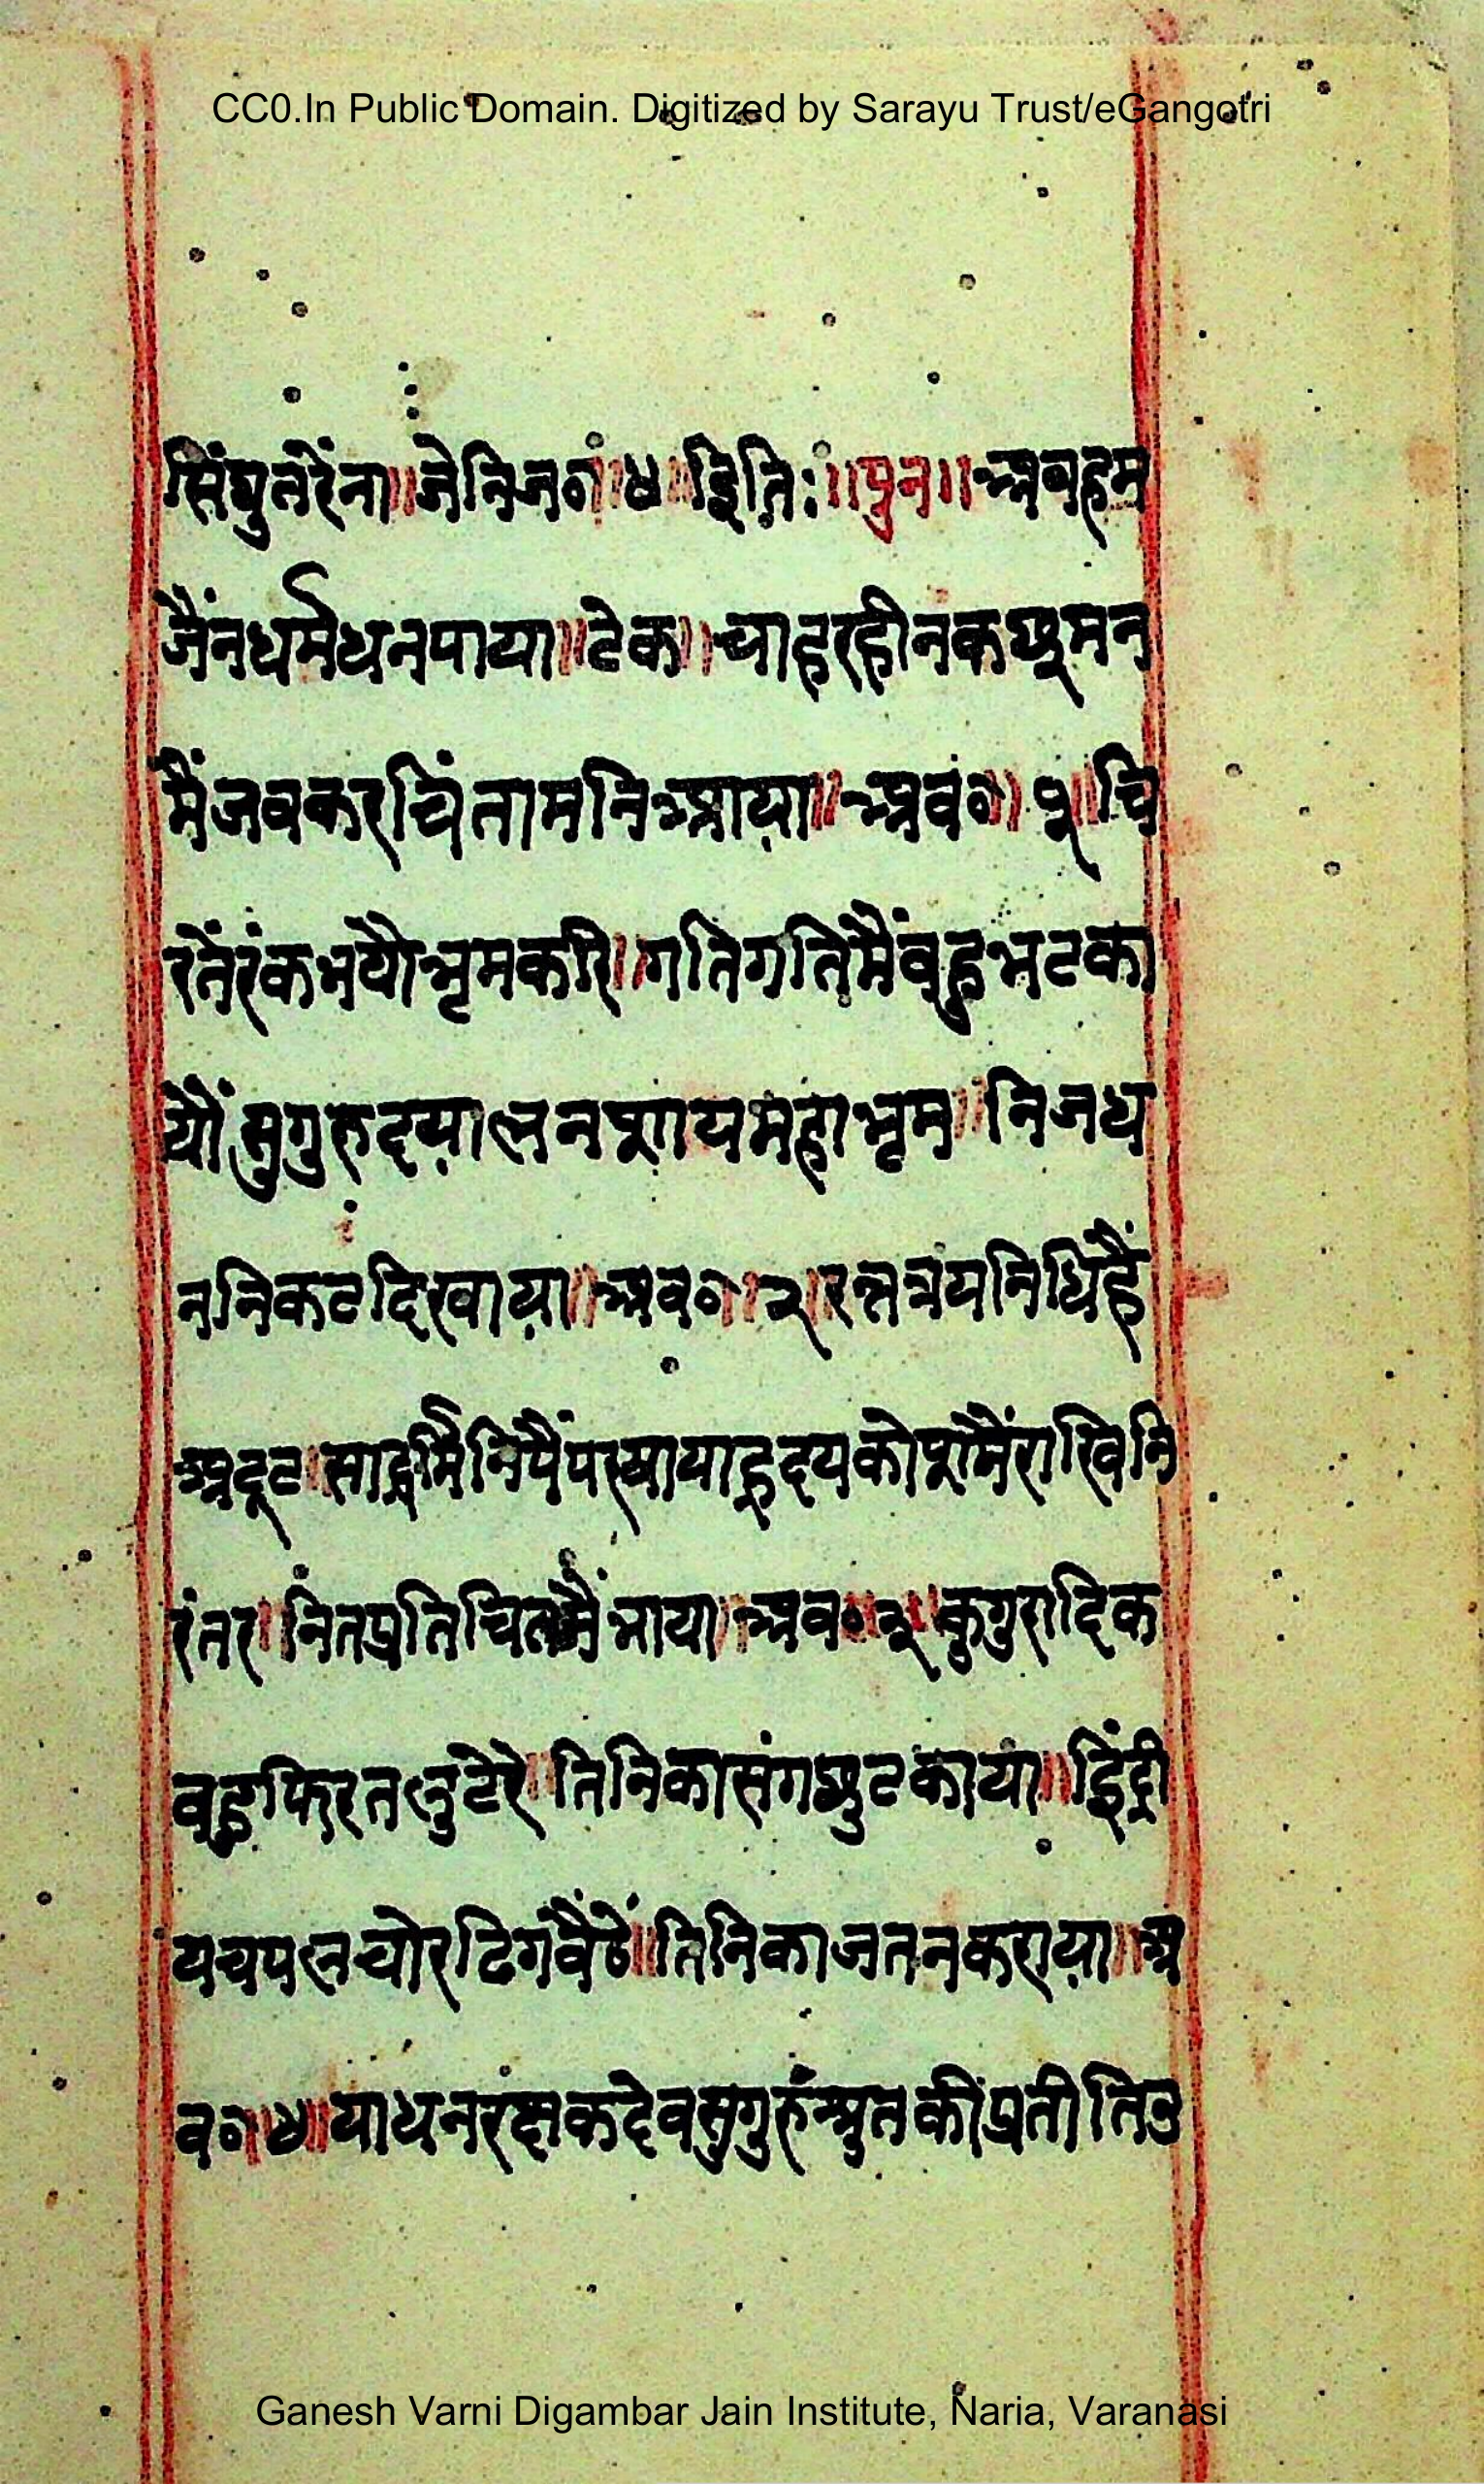 CC0.In Public Domain. Digitized by Sarayu Trust/eGangotri
सिंघुतरेंना॥जेनिजगं॥४॥इति:॥पुन॥अबहम
जैंनधर्मधनपाया॥टेक॥चाहरहीनकछूमन
मैंजबकरचिंतामनिआया॥अब०॥१॥चि
रतेंरंकभयौभृमकरि॥गतिगतिमैंबहुभटका
यौं सुगुरुदयालनशायमहाभृम॥निजध
ननिकटदिखाया॥अब०॥२॥रत्नत्रयनिधिहैं
अटूट॥साद्धर्मिनिपैंपरषायाहृदयकोषमैंराखिनि
रंतर॥नितप्रतिचितमैंभाया॥अब०३॥कुगुरादिक
बहुफिरतलुटेरे॥तिनिकासंगछुटकाया॥इंद्री
यचपलचोरढिगबैठें॥तिनिकाजतनकराया॥अ
ब०॥४॥याधनरक्षकदेवसुगुरुश्रुतकीप्रतीतिउ
Ganesh Varni Digambar Jain Institute, Naria, Varanasi